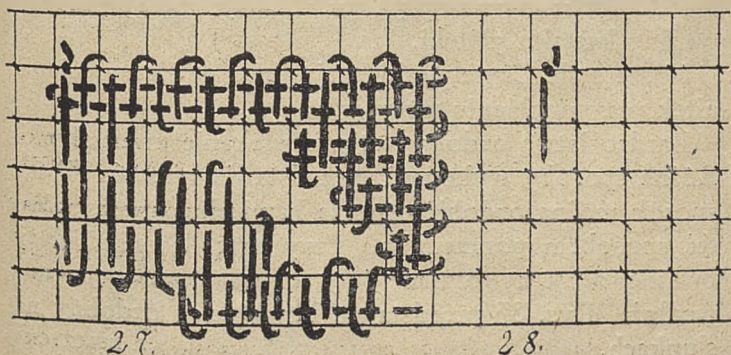 27. 28.